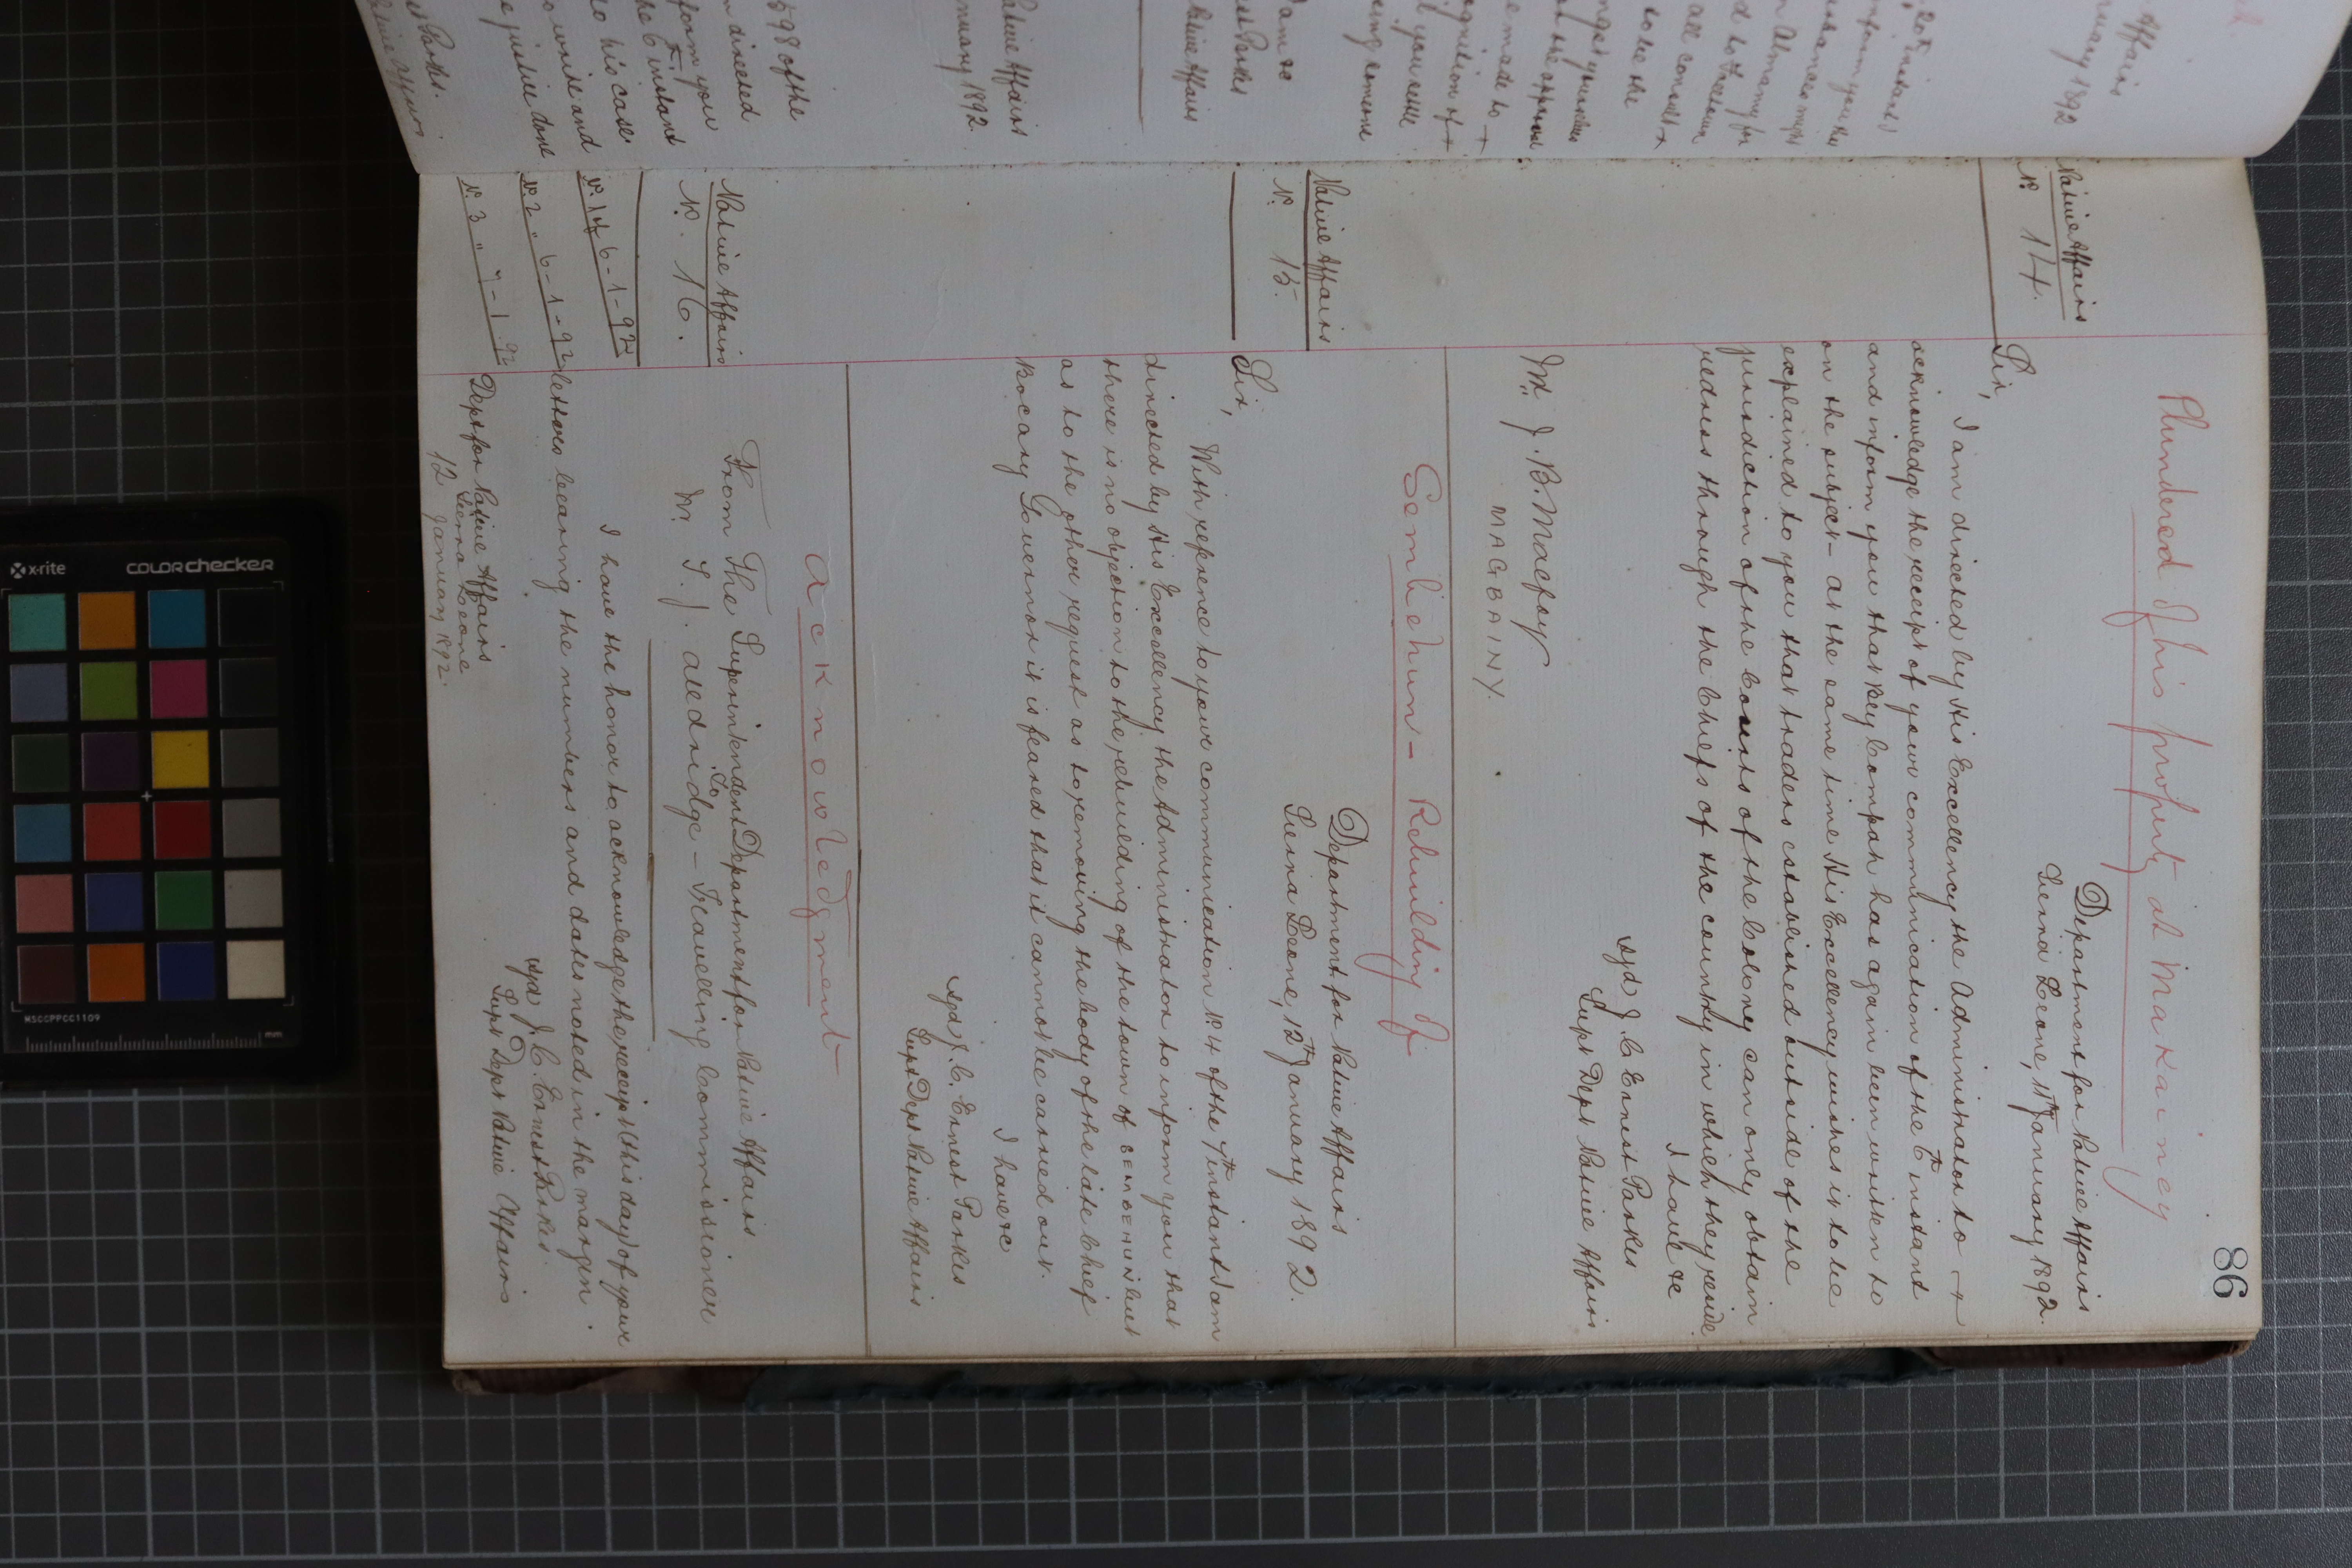 86
Plundered of his property at Makainey
Department for Native Affairs
Sierra Leone, 11th January 1892.
Native Affairs
No. 14.
Sir,
I am directed by His Excellency the Administrator to
acknowledge the receipt of your communication of the 6th instant
and inform you that Bey Compah has again been written to
on the subject - at the same time His Excellency wishes it to be
explained to you that traders established outside of the
jurisdiction of the Courts of the Colony can only obtain
redress through the Chiefs of the country in which they reside
I have &c
sgd J. C. Ernest Parkes
Supt Dept Native Affairs
Mr. J. B. Macfoy
MAGBAINY.
Sembehun - Rebuilding of
Department for Native Affairs
Sierra Leone, 12th January 1892.
Native Affairs
No. 15.
Sir,
With reference to your communication No. 4 of the 7th instant I am
directed by His Excellency the Administrator to inform you that
there is no objection to the rebuilding of the town of SEMBEHUN but
as to the other request as to removing the body of the late Chief
Bocary Governor it is feared that it cannot be carried out.
I have &c
sgd J. C. Ernest Parkes
Supt Dept Native Affairs
Acknowledgment
Native Affairs
No. 16.
From The Superintendent Department for Native Affairs
To
Mr. T. J. Alldridge - Travelling Commissioner
No. 1 of 6-1-92
No. 2 " 6-1-92
No. 3 " 7-1-92
I have the honor to acknowledge the receipt (this day) of your
letters bearing the numbers and dates noted in the margin.
sgd J. C. Ernest Parkes
Supt Dept Native Affairs
Dept for Native Affairs
Sierra Leone
12 January 1892.
x-rite
COLORchecker
MSCCPPCC1109
mm